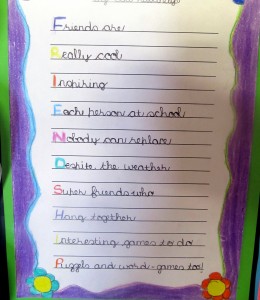 Friends are
Really cool
Inspiring
Each person at school
Nobody can replace
Despite the weather
Super friends who
Hang together
Interesting games to do
Puzzels and word-games too!